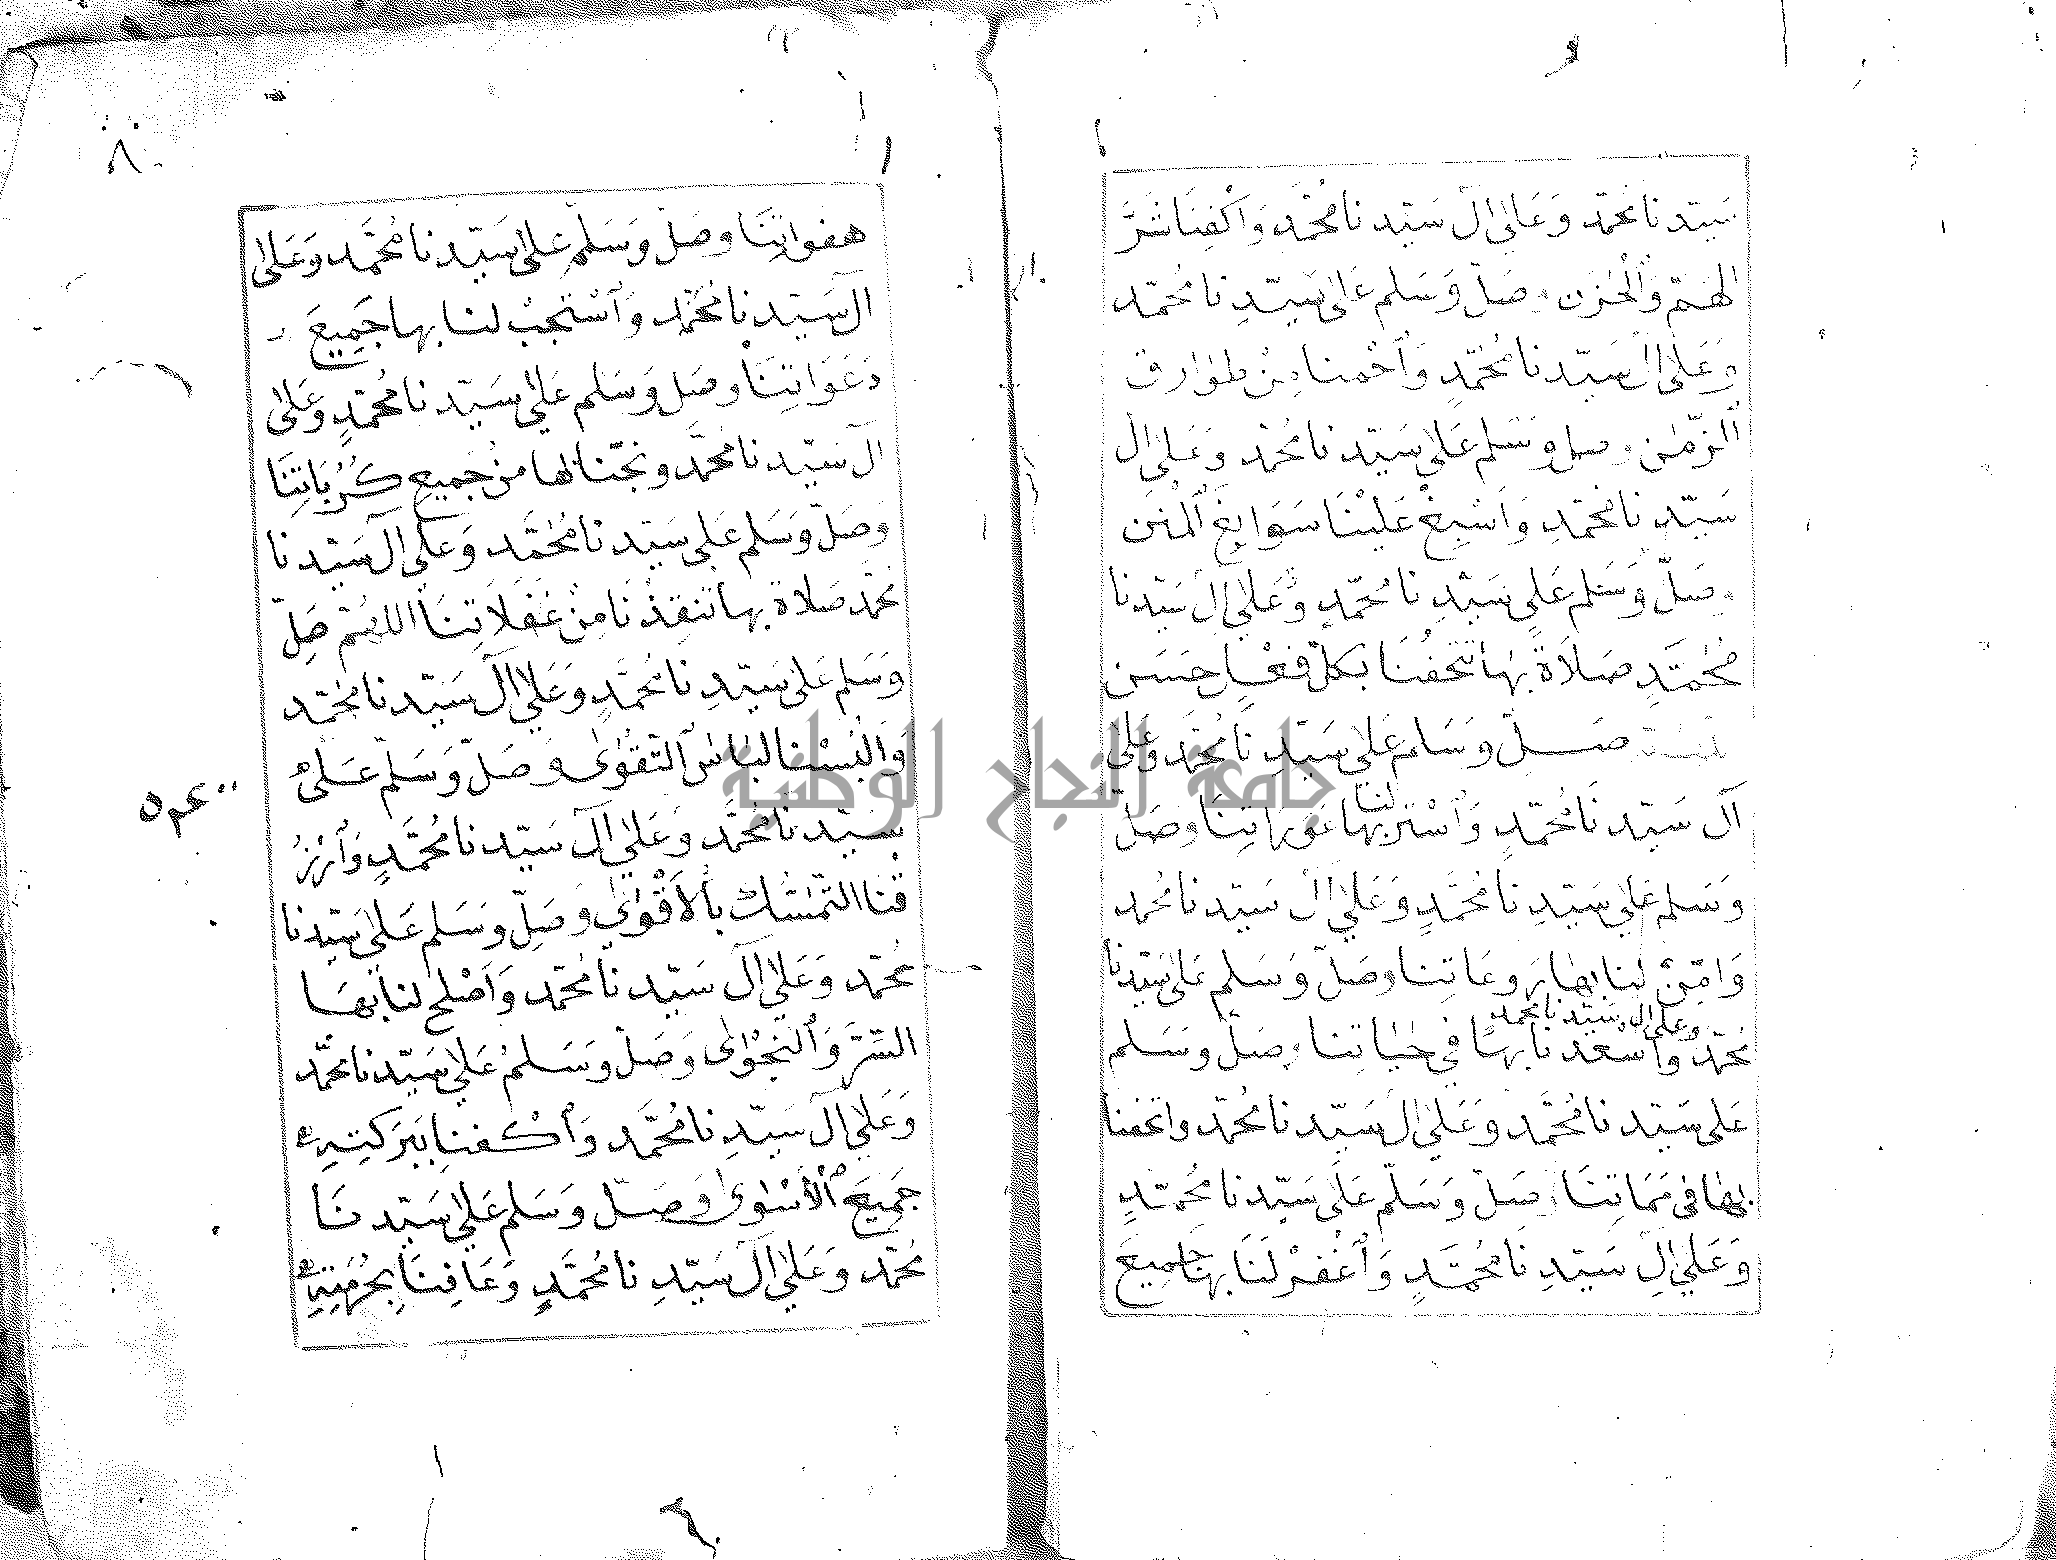 سَيّدنا محمّد وَعَلىٰ الۤ سَيّدنا محُمَّد وَاكْفِنَا شَرَّ
الهَمّ وَٱلْحزن وصَلّ وَسَلم عَلىٰ سَيّدِنا محُمّد
وَعَلىٰ ال سَيّدنا محُمّدٍ وَٱحْمنا مِنْ طوَارق
ٱلزّمٰن وصل وسَلم عَلىٰ سَيّدنا محُمّد وَعَلىٰ ال
سَيّدِنا محُمّدٍ وَاَسْبِغْ عَلَيْنَا سَوَابِغَ ٱلْمنَن
وصَلّ وَسَلم عَلىٰ سَيّدِنا محُمّدٍ وَعَلىٰ الۤ سَيّدنا
محُمّدٍ صَلاَةً بهٰا تتحفُنَا بكلّ فعْلٍ حسَن
صَلّ وسَلم عَلىٰ سَيّدِنَا محُمَّد وَعَلىٰ
آل سَيّدنَا محُمّدٍ وَٱسْتر لنا بهَا عَورَاتِنَا وصَلّ
وَسَلم عَلىٰ سَيّدِنَا محُمَّدٍ وَعَلىٰ الۤ سَيّدنا محُمد
وَاٰمِنْ لنا بهٰا رَوعَاتِنا وصَلّ وَسَلم عَلىٰ سَيّدنا
وعلىٰ ال سَيّدنا محمد
محمّدٍ وأسْعدْنا بهَا في حيٰاتنا وصَلّ وَسَلم
عَلىٰ سَيّدنا محُمَّد وَعَلىٰ الَ سَيّدنا محُمّد واتحفنا
بهٰا في ممَاتِنَا وصَلّ وَسَلّم عَلَىٰ سَيّدنا محُمّدٍ
وَعَلىٰ الِ سَيّدِنَا محُمَّدٍ وَٱغْفرْ لَنَا بهَا جَمِيعَ
هفوَاتِنَا وصَلّ وَسَلم عَلىٰ سَيّدنا محُمَّد وَعَلىٰ
ال سَيّدنا محُمَّدٍ وَٱسْتجبْ لنا بها جَمِيعَ
دَعَوَاتِنَا وصَل وَسَلم عَلىٰ سَيّدنا محُمّدٍ وعَلىٰ
الۤ سَيّدنا محُمَّد ونجّنا بهٰا منْ جَميع كُرُبَاتِنَا
وصَلّ وَسَلم عَلىٰ سَيّدنا محُمَّد وَعَلىٰ الۤ سَيّدنا
محمّد صَلاةً بها تنقِذُنَا مِنْ غَفَلاَتِنَا اللهُمّ صَلّ
وَسَلم عَلىٰ سَيّدِنا محُمَّدٍ وَعَلىٰ الۤ سَيّدنا محُمّد
وَالْبسْنا لبٰاسَ ٱلتّقْوَىٰ وصَلّ وَسَلّم عَلىٰ
سَيّدنَا محُمَّد وَعَلىٰ الۤ سَيّدنا محُمَّدٍ وَٱرْزُ
قنا التّمسُّك بٱلاَقْوىٰ وصَلّ وَسَلم عَلىٰ سَيّدنا
محُمّد وَعَلىٰ الۤ سَيّدنا محُمّد وَاَصْلح لنا بهَا
السّرَّ وَٱلنجْوىٰ وَصَلّ وسَلمُ عَلىٰ سَيّدنا محمّد
وَعَلىٰ الۤ سَيّدِنا محُمَّد وَٱكْفنا ببَرَكتِهِ
جَمِيعَ ٱلْأسْوىٰ وصَلّ وَسَلم عَلىٰ سَيّدنَا
محُمّد وعَلىٰ الۤ سَيّدِنا محُمَّدٍ وَعَافِنَا بِحُرْمَتِهِ
٨
٦
جامعة النجاح الوطنية